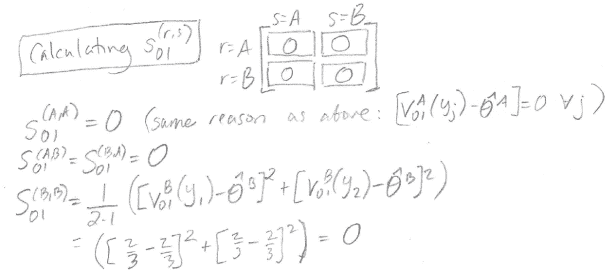 s=A s=B
Calculating S₀₁^(r,s) r=A 0 0
r=B 0 0
S₀₁^(A,A) = 0 (same reason as above: [V₀₁^A(y_j) - θ̂^A] = 0 ∀j)
S₀₁^(A,B) = S₀₁^(B,A) = 0
S₀₁^(B,B) = 1/2·1 ([V₀₁^B(y₁) - θ̂^B]² + [V₀₁^B(y₂) - θ̂^B]²)
= ([2/3 - 2/3]² + [2/3 - 2/3]²) = 0